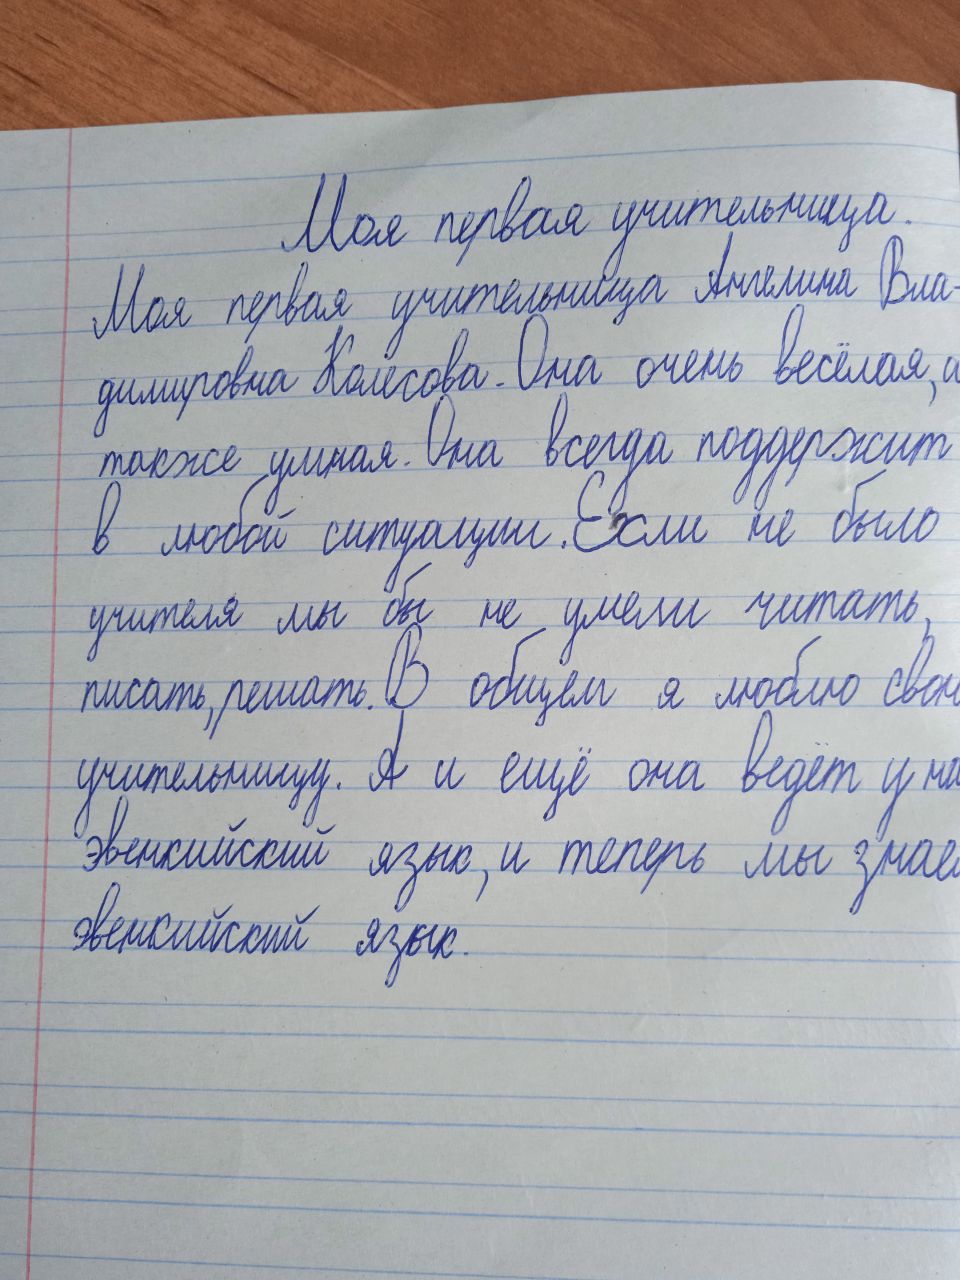 Моя первая учительница.
Моя первая учительница Ангелина Вла-
димировна Колесова. Она очень весёлая, а
также умная. Она всегда поддержит
в любой ситуации. Если не было
учителя мы бы не умели читать,
писать, решать. В общем я люблю свою
учительницу. А и ещё она ведёт у на
эвенкийский язык, и теперь мы знаем
эвенкийский язык.